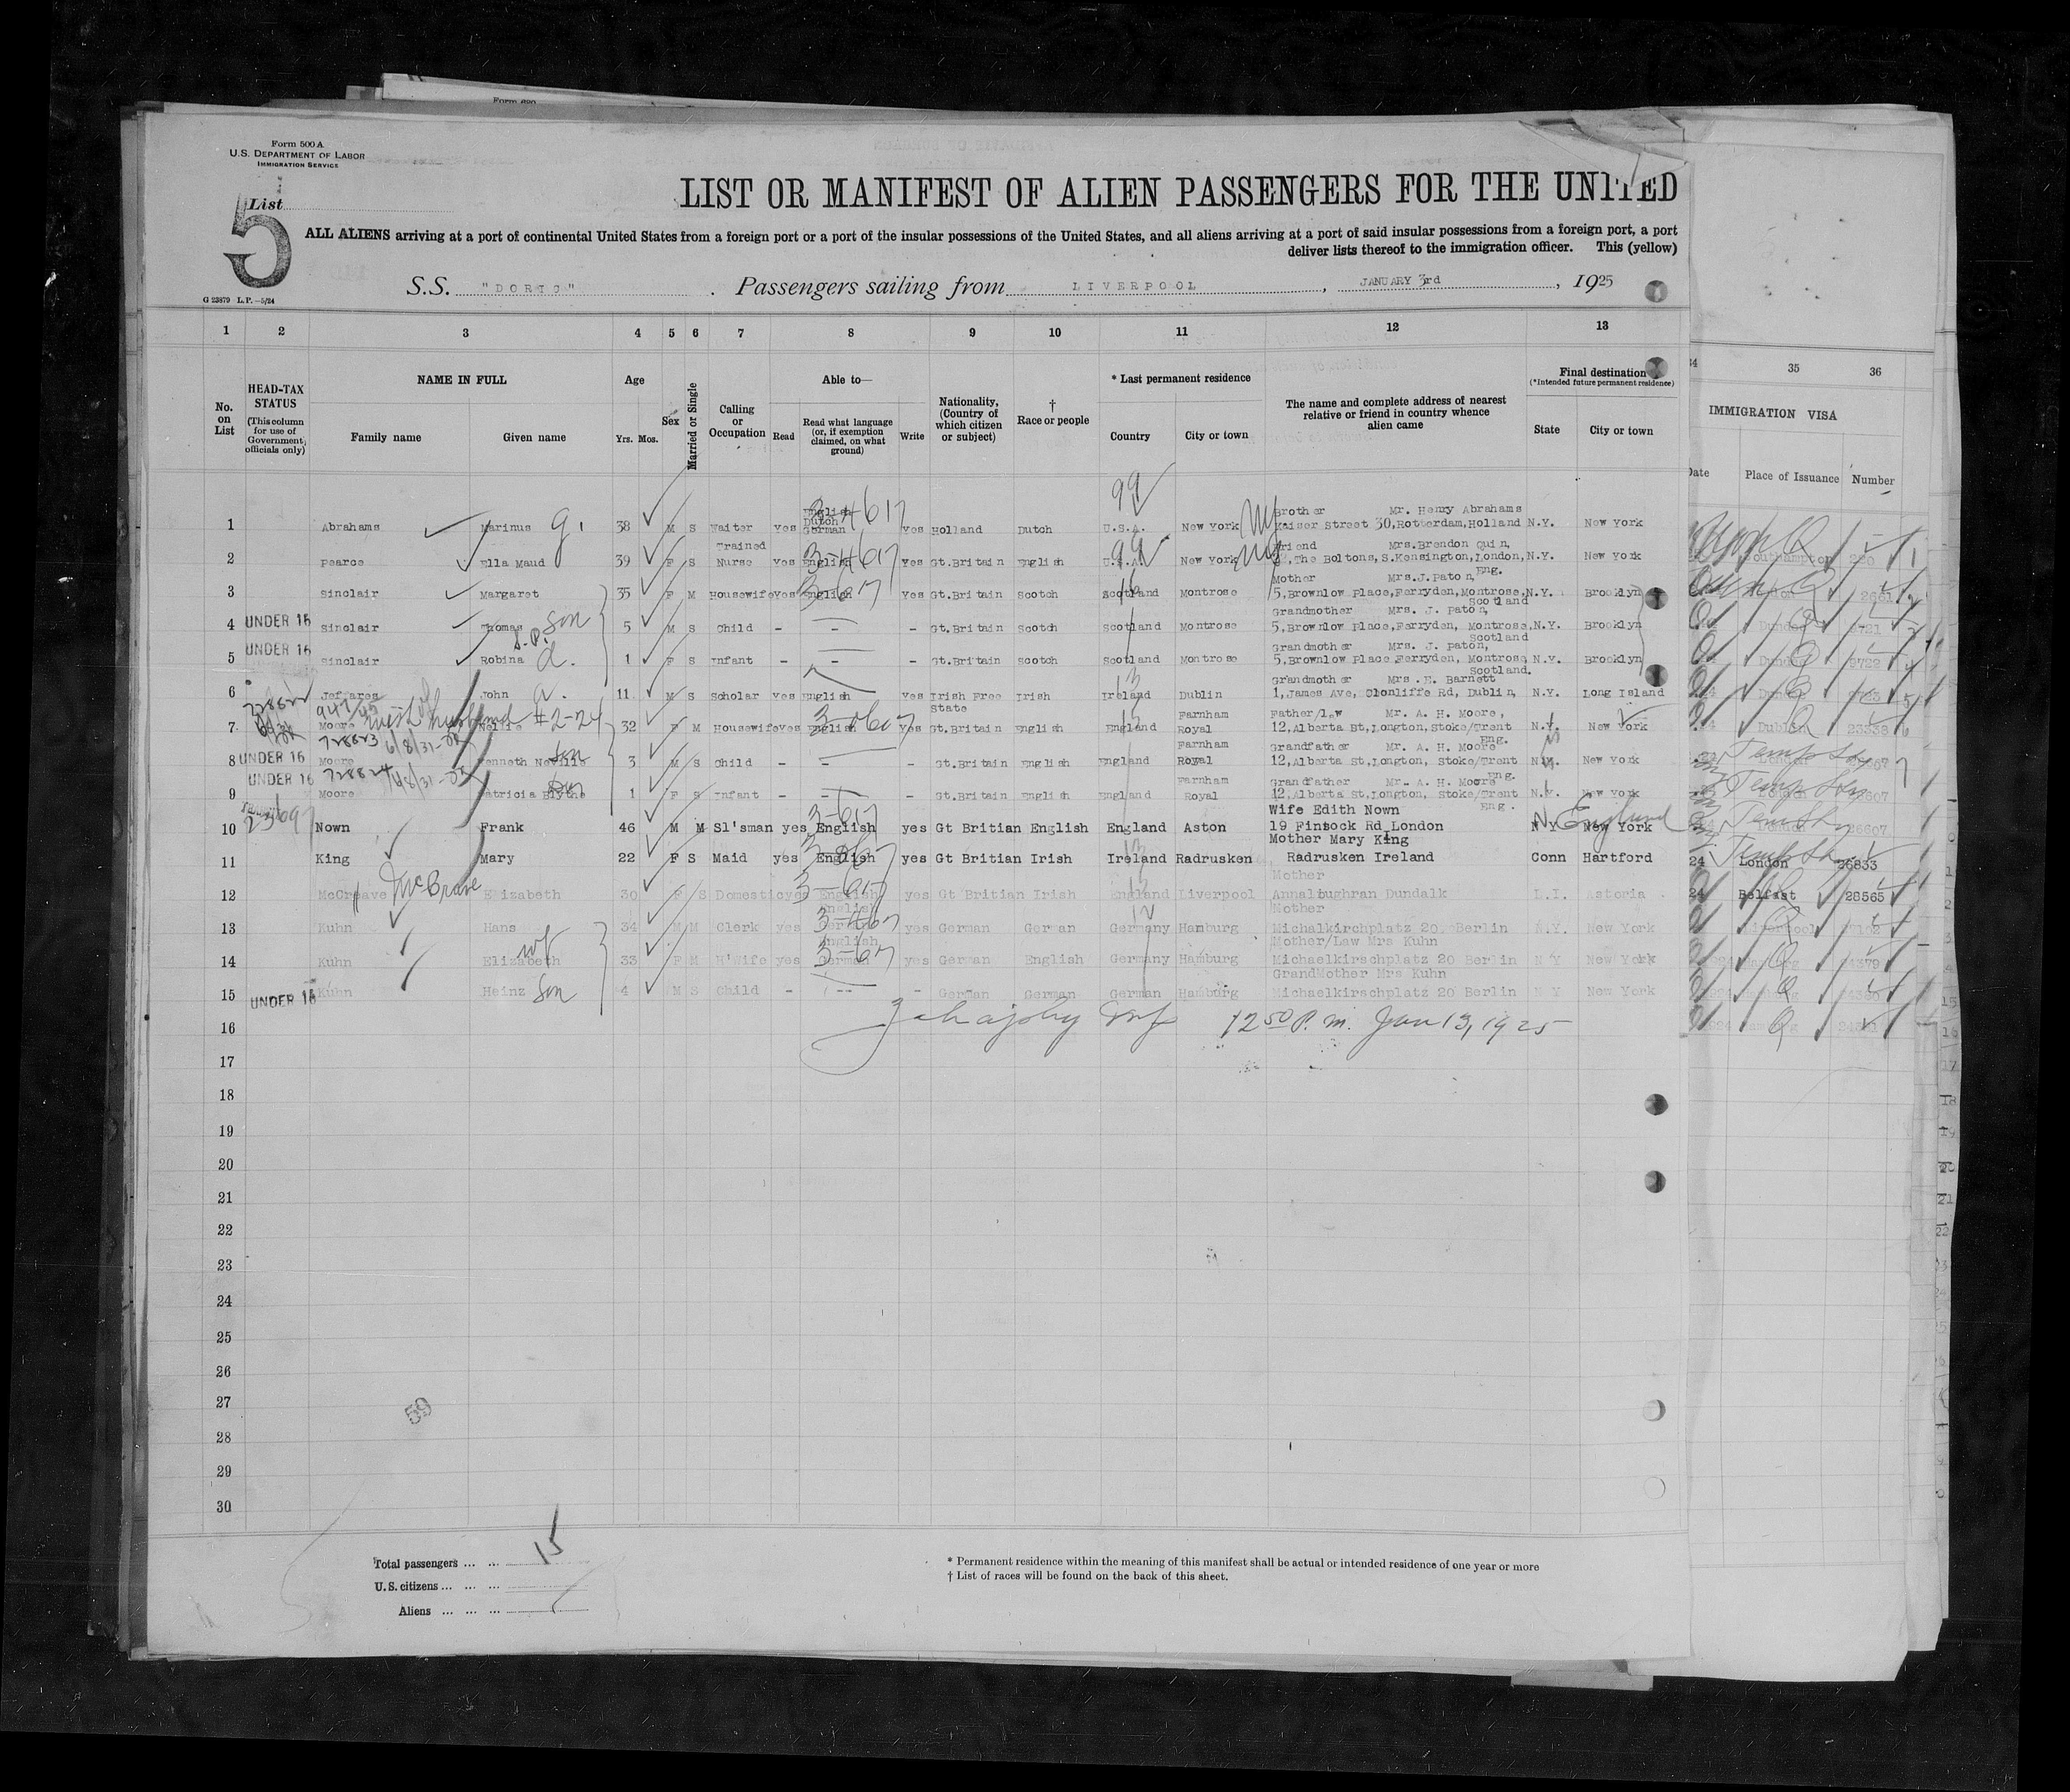 Form 620
Form 500 A
U.S. DEPARTMENT OF LABOR
IMMIGRATION SERVICE
List
5
LIST OR MANIFEST OF ALIEN PASSENGERS FOR THE UNITED
ALL ALIENS arriving at a port of continental United States from a foreign port or a port of the insular possessions of the United States, and all aliens arriving at a port of said insular possessions from a foreign port, a port
deliver lists thereof to the immigration officer. This (yellow)
G 23879 L.P.—5/24
S.S. "DORIC" . Passengers sailing from LIVERPOOL , JANUARY 3rd , 1925
1 2 3 4 5 6 7 8 9 10 11 12 13
35 36
HEAD-TAX STATUS (This column for use of Government officials only)
No. on List
NAME IN FULL
Family name Given name
Age
Yrs. Mos.
Sex
Married or Single
Calling or Occupation
Able to—
Read
Read what language (or, if exemption claimed, on what ground)
Write
Nationality, (Country of which citizen or subject)
† Race or people
* Last permanent residence
Country City or town
The name and complete address of nearest relative or friend in country whence alien came
Final destination (*Intended future permanent residence)
State City or town
IMMIGRATION VISA
Date Place of Issuance Number
1 Abrahams Marinus G. 38 M S Waiter Yes English Dutch German Yes Holland Dutch U.S.A. New York Brother Mr. Henry Abrahams Kaiser Street 30, Rotterdam, Holland N.Y. New York
2 Pearce Ella Maud 39 F S Trained Nurse Yes English Yes Gt.Britain English U.S.A. New York Friend Mrs.Brendon Quin, The Boltons, S.Kensington, London, Eng. N.Y. New York
3 Sinclair Margaret 35 F M Housewife Yes English Yes Gt.Britain Scotch Scotland Montrose Mother Mrs.J.Paton, 5,Brownlow Place,Ferryden,Montrose, Scotland N.Y. Brooklyn
UNDER 16 4 Sinclair Thomas son 5 M S Child - - - Gt.Britain Scotch Scotland Montrose Grandmother Mrs. J. Paton, 5,Brownlow Place,Ferryden, Montrose, Scotland N.Y. Brooklyn
UNDER 16 5 Sinclair Robina S.P. d. 1 F S Infant - - - Gt.Britain Scotch Scotland Montrose Grandmother Mrs. J. Paton, 5,Brownlow Place,Ferryden, Montrose, Scotland. N.Y. Brooklyn
6 Jeffares John a. 11 M S Scholar Yes English Yes Irish Free State Irish Ireland Dublin Grandmother Mrs. E. Barnett 1,James Ave, Clonliffe Rd, Dublin, N.Y. Long Island
7 Moore Nellie 32 F M Housewife Yes English Yes Gt.Britain English England Farnham Royal Father/law Mr. A. H. Moore, 12,Alberta St,Longton,Stoke/Trent Eng. N.Y. New York
UNDER 16 8 Moore 728823 6/8/31 Kenneth Neville son 3 M S Child - - - Gt.Britain English England Farnham Royal Grandfather Mr. A. H. Moore 12,Alberta St,Longton, Stoke/Trent Eng. N.Y. New York
UNDER 16 9 Moore 728824 6/8/31 Patricia Blythe 1 F S Infant - - - Gt.Britain English England Farnham Royal Grandfather Mr. A. H. Moore 12,Alberta St,Longton, Stoke/Trent Eng. N.Y. New York
10 Nown Frank 46 M M Sl'sman yes English yes Gt Britian English England Aston Wife Edith Nown 19 Finsock Rd London N Y New York England
11 King Mary 22 F S Maid yes English yes Gt Britian Irish Ireland Radrusken Mother Mary King Radrusken Ireland Conn Hartford
12 McCreave McBrave Elizabeth 30 F S Domestc yes English yes Gt Britian Irish England Liverpool Mother Annaloughran Dundalk L.I. Astoria
13 Kuhn Hans 34 M M Clerk yes English German yes German German Germany Hamburg Mother Michalkirchplatz 20 Berlin N.Y. New York
14 Kuhn Elizabeth wf 33 F M H'Wife yes English German yes German English Germany Hamburg Mother/Law Mrs Kuhn Michaelkirschplatz 20 Berlin N Y New York
UNDER 16 15 Kuhn Heinz son 4 M S Child - -- - German German German Hamburg GrandMother Mrs Kuhn Michaelkirschplatz 20 Berlin N Y New York
16 12 50 P.m. Jan 13, 1925
17
18
19
20
21
22
23
24
25
26
27
28
29
30
London 26833
Belfast 28565
59
Total passengers ... ... 15
U.S. citizens ... ... ...
Aliens ... ... ...
* Permanent residence within the meaning of this manifest shall be actual or intended residence of one year or more
† List of races will be found on the back of this sheet.